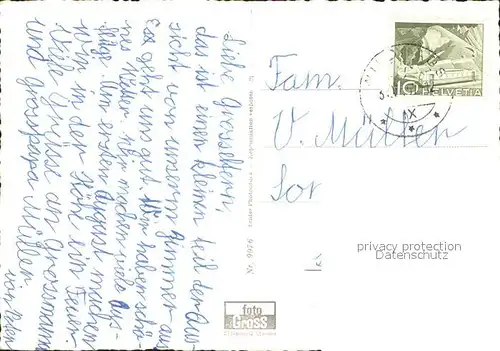 Liebe Grosseltern,
das ist einen kleinen Teil der Aus-
sicht von unserm Zimmer aus
Es geht uns gut. Wir haben schö-
nes Wetter. Wir machen viele Aus-
flüge. Am ersten August machen
wir in der Nähe ein Feuer.
Viele Grüsse an Grossmama
und Grosspapa Müller
von
Fam.
V. Müller
Sor
HELVETIA
10
IX
Nr. 9976
foto
Gross
privacy protection
watermark